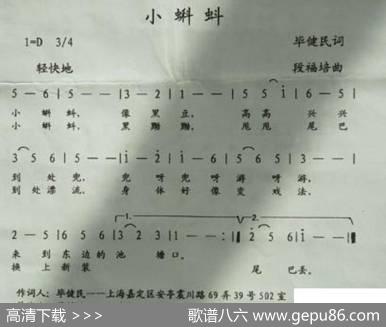 小蝌蚪
1=D 3/4
毕健民词
轻快地
段福培曲
5 - 6 | 5 - - | 3 - 2 | 1 - - | 5 5 i | 6 - - | 5 - - |
小 蝌 蚪， 像 黑 豆， 高高 兴 兴
小 蝌 蚪， 黑 黝 黝， 甩甩 尾 巴
3 5 6 | 5 - - | i - 2 | i - 6 | 5 6 5 | 3 - - |
到 处 兜， 兜 呀 兜 呀 游 呀 游，
到处漂流， 身 体 好 像 变 戏 法，
1.
2.
2 - 5 | 6 5 6 | 3 - 2 | 1 - - :| 2 5 6 | i - - ‖
来 到 东 边 的 池 塘 口。
换 上 新 装 尾 巴 丢。
作词人：毕健民——上海嘉定区安亭震川路69弄39号502室
高清下载 >>>
歌谱八六 www.gepu86.com